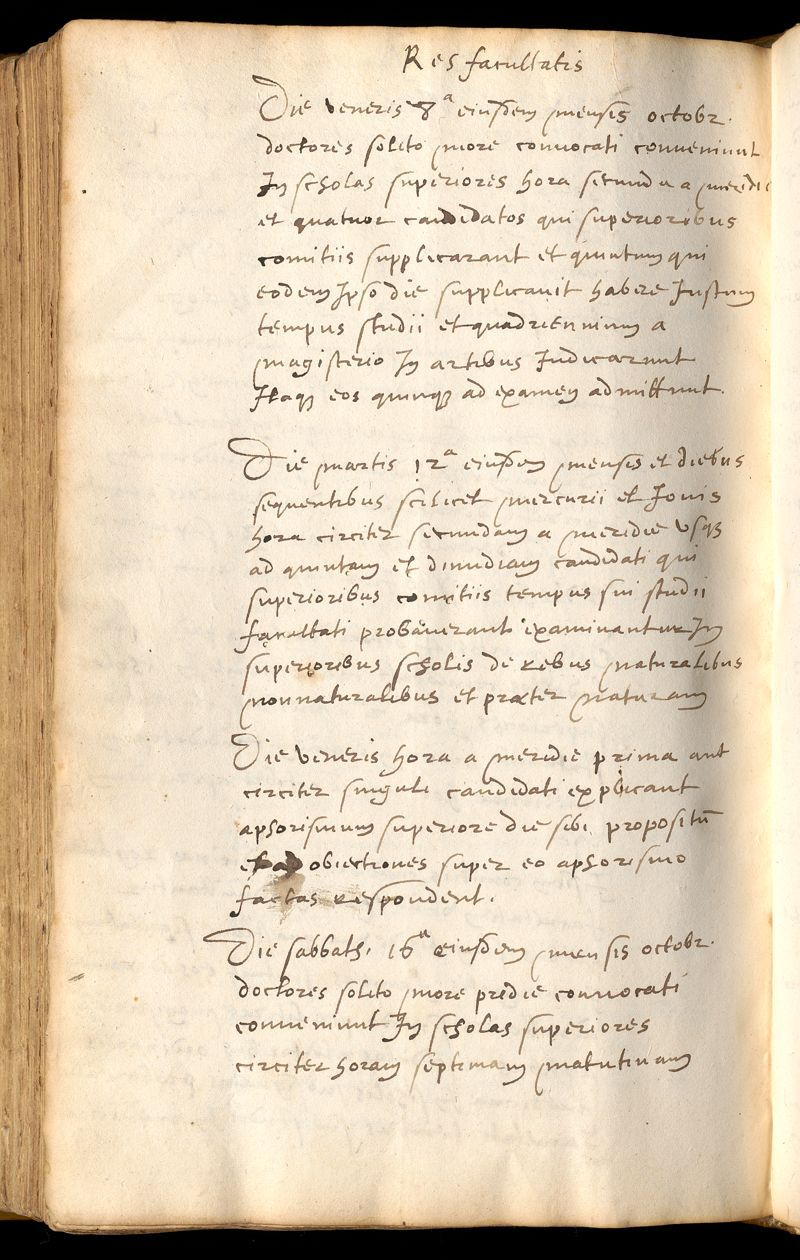 Res facultatis
Die veneris 8ª eiusdem mensis octobr.
doctores solito more convocati conveniunt
In scholas superiores hora secunda a meridie
et quatuor candidatos qui superioribus
comitiis supplicarant et quintum qui
eodem Ipso die supplicavit habere Iustum
tempus studii et quadriennium a
magisterio In artibus Iudicarunt
Itaqꝫ eos quinqꝫ ad examen admittunt.
Die martis 12ª eiusdem mensis et diebus
sequentibus scilicet mercurii et Iovis
hora circiter secundam a meridie vsqꝫ
ad quintam et dimidiam candidati qui
superioribus comitiis tempus sui studii
facultati probaverant examinantur In
superioribus scholis de rebus naturalibus
nonnaturalibus et præter naturam
Die veneris hora a meridie prima aut
circiter singuli candidati explicant
aphorismum superiore die sibi propositū
et ad obiectiones super eo aphorismo
factas respondent.
Die sabbathi 16ª eiusdem mensis octobr.
doctores solito more pridie convocati
conveniunt In scholas superiores
circiter horam septimam matutinam